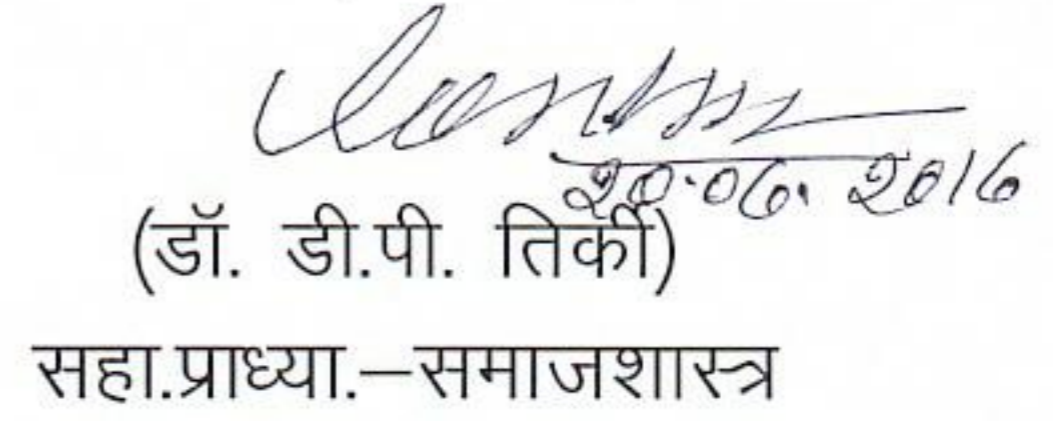 20.06. 2016
(डॉ. डी.पी. तिर्की)
सहा.प्राध्या.–समाजशास्त्र